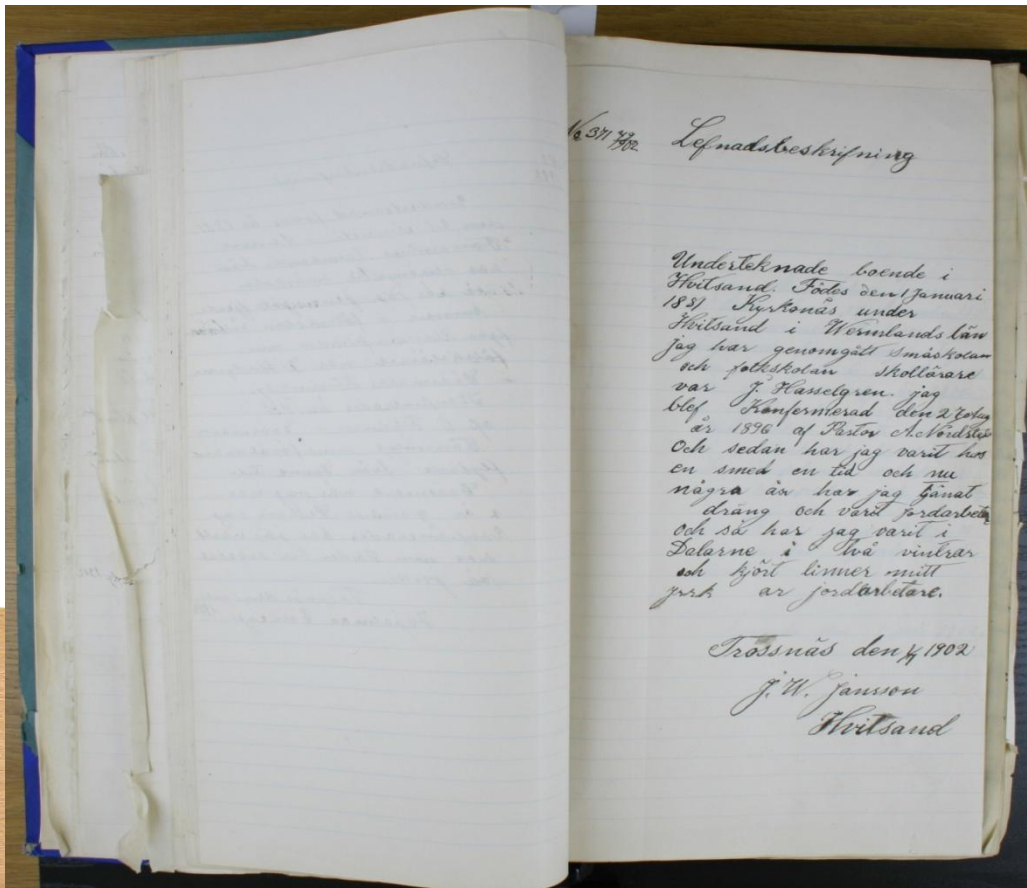 No 371 49/1902
Lefnadsbeskrifning
Underteknade boende i
Hvitsand. Födes den 1 Januari
1881 Kyrkonäs under
Hvitsand i Wermlands län
jag har genomgått småskolan
och folkskolan skollärare
var J. Hasselgren. jag
blef Konfermerad den 2
år 1896 af Pastor A.
Och sedan har jag varit hos
en smed en tid och nu
några år har jag tjänat
dräng och varit jordarbetare
och så har jag varit i
Dalarne i två vintrar
och kjört timmer mitt
yrrk är jordarbetare.
Trossnäs den 1902
J. W. Jansson
Hvitsand